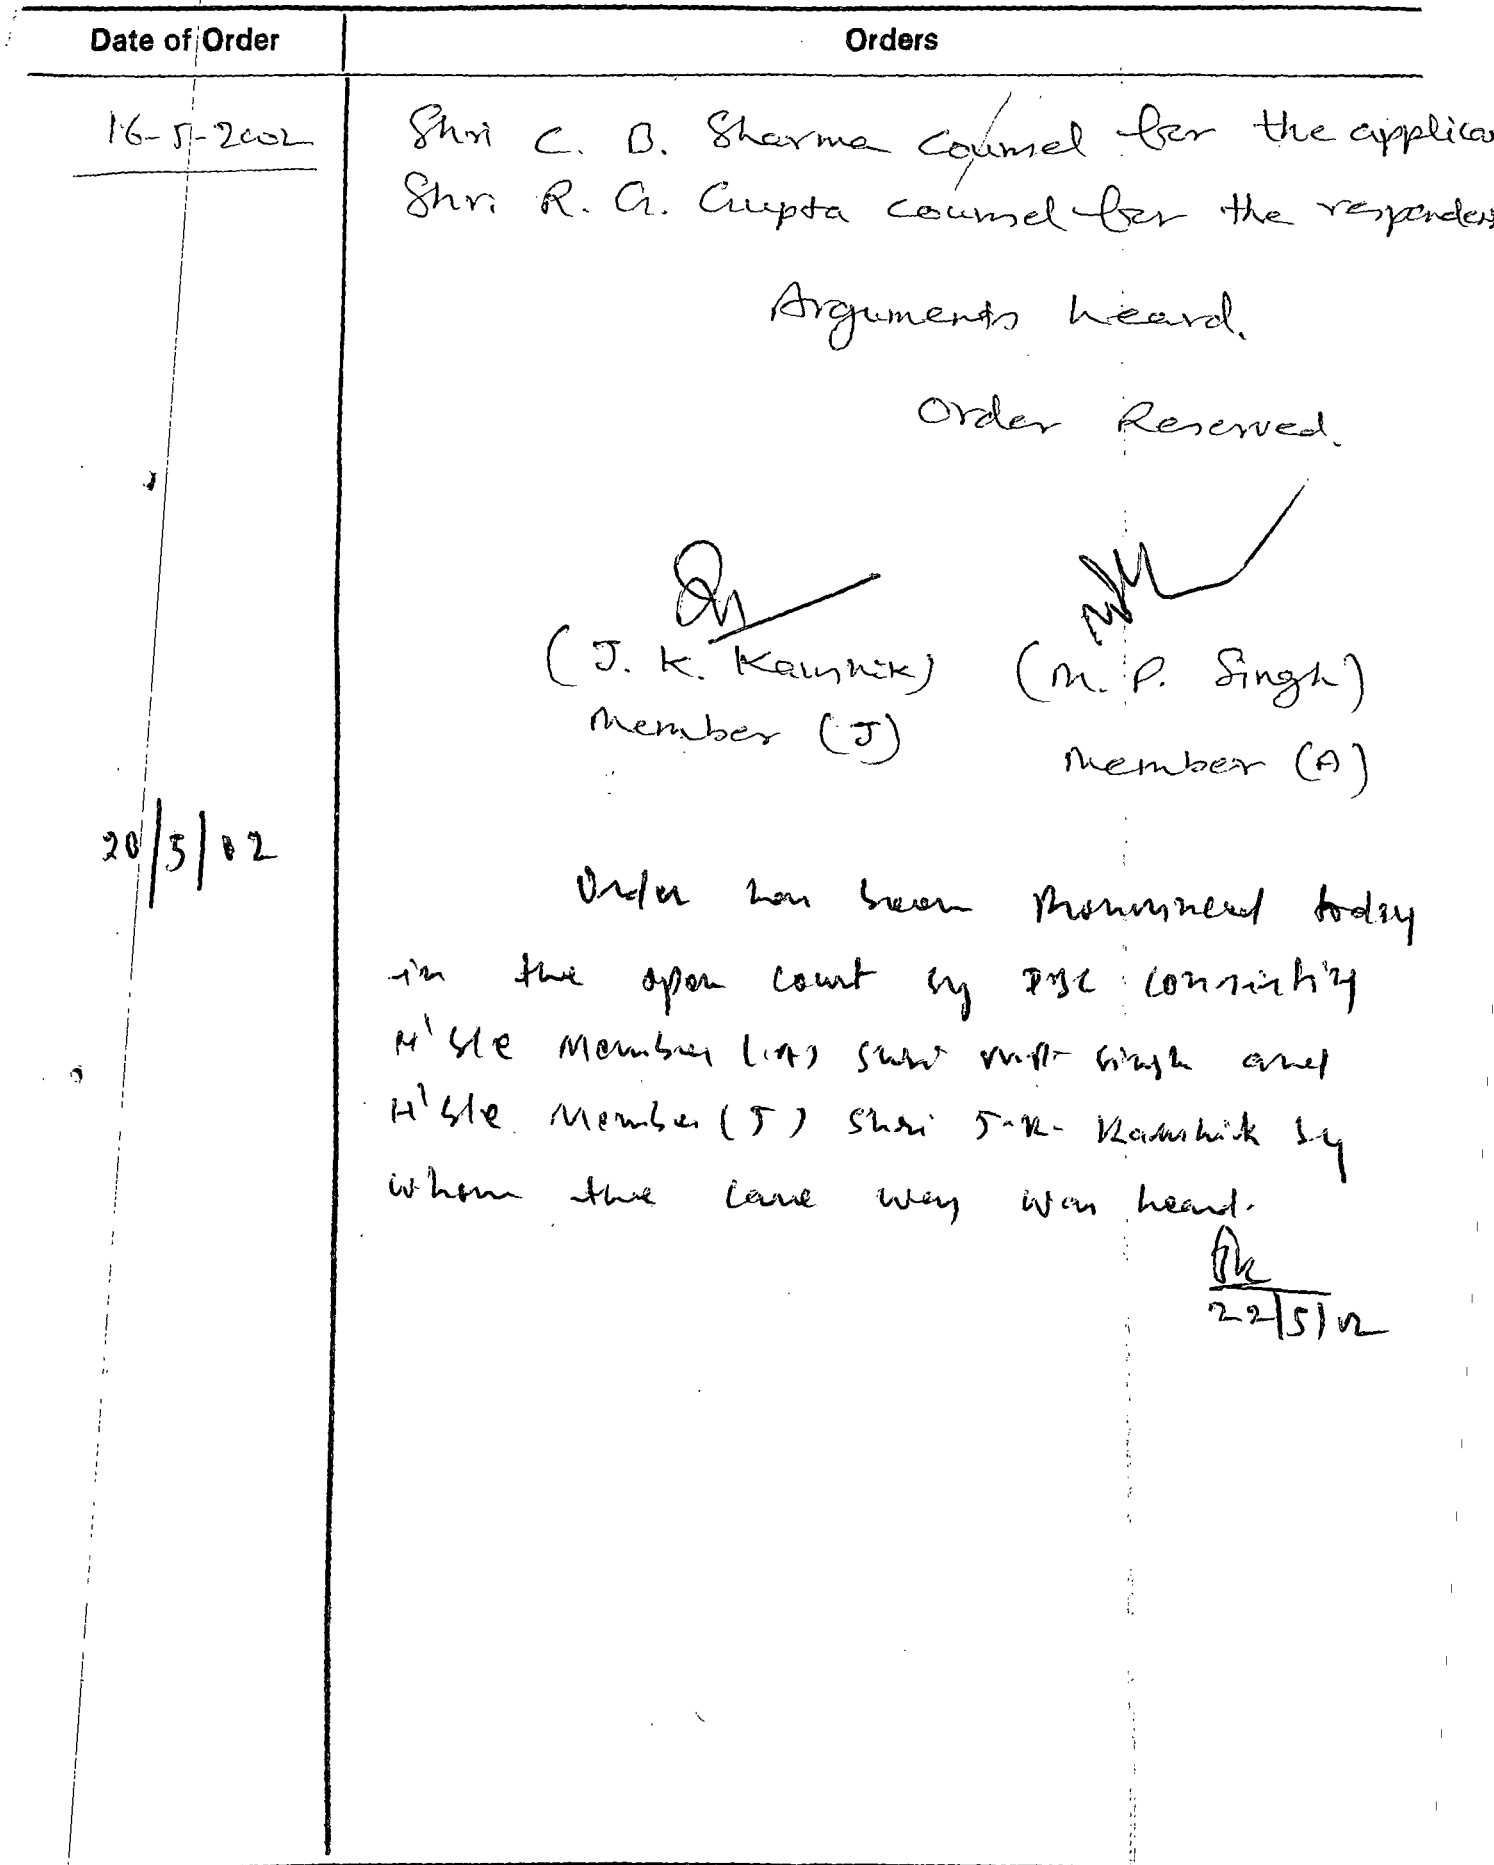 Date of Order Orders
16-5-2002 Shri C. B. Sharma counsel for the applica
Shri R. G. Gupta counsel for the responden
Arguments heard.
Order Reserved.
(J. K. Kaushik) (M. P. Singh)
Member (J) Member (A)
20/5/02
Order has been pronounced today
in the open court by consisting
H'ble Member (A) Shri M.P. Singh and
H'ble Member (J) Shri J.K. Kaushik by
whom the case was heard.
22/5/02